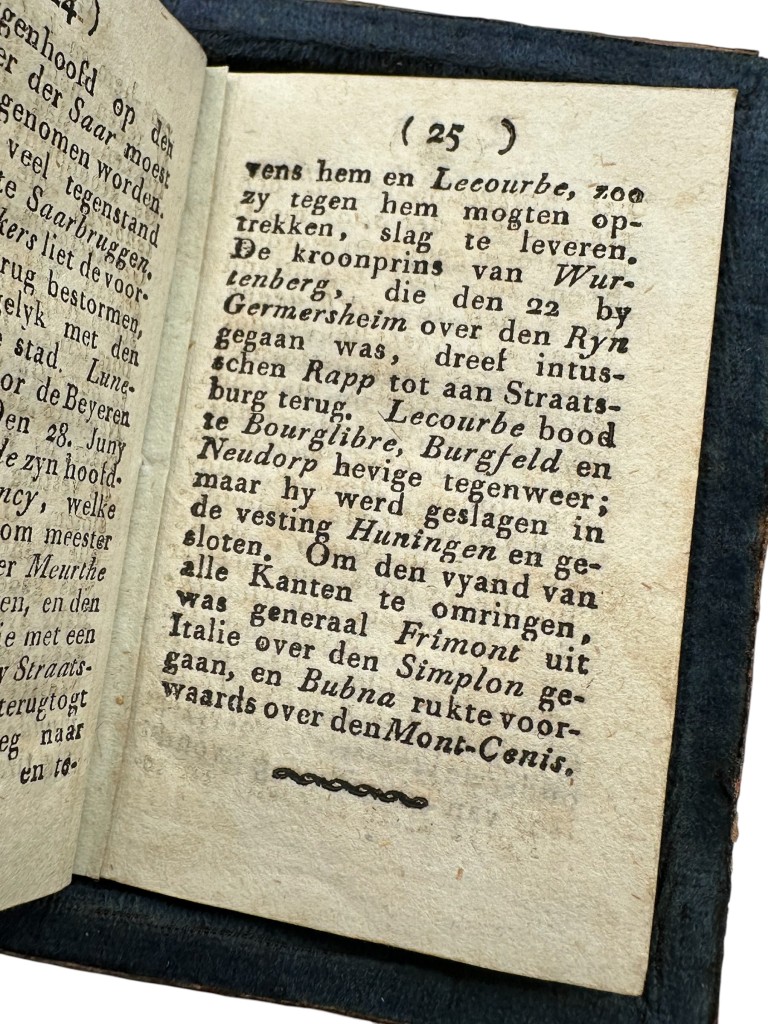 24 )
genhoofd op den
er der Saar moest
genomen worden.
veel tegenstand
te Saarbruggen.
kers liet de voor-
rug bestormen,
gelyk met den
stad. Lune-
or de Beyeren
Den 28. Juny
de zyn hoofd-
ncy, welke
om meester
er Meurthe
en, en den
ie met een
y Straats-
terugtogt
eg naar
en te-
( 25 )
vens hem en Lecourbe, zoo
zy tegen hem mogten op-
trekken, slag te leveren.
De kroonprins van Wur-
tenberg, die den 22 by
Germersheim over den Ryn
gegaan was, dreef intus-
schen Rapp tot aan Straats-
burg terug. Lecourbe bood
te Bourglibre, Burgfeld en
Neudorp hevige tegenweer;
maar hy werd geslagen in
de vesting Huningen en ge-
sloten. Om den vyand van
alle Kanten te omringen,
was generaal Frimont uit
Italie over den Simplon ge-
gaan, en Bubna rukte voor-
waards over den Mont-Cenis.